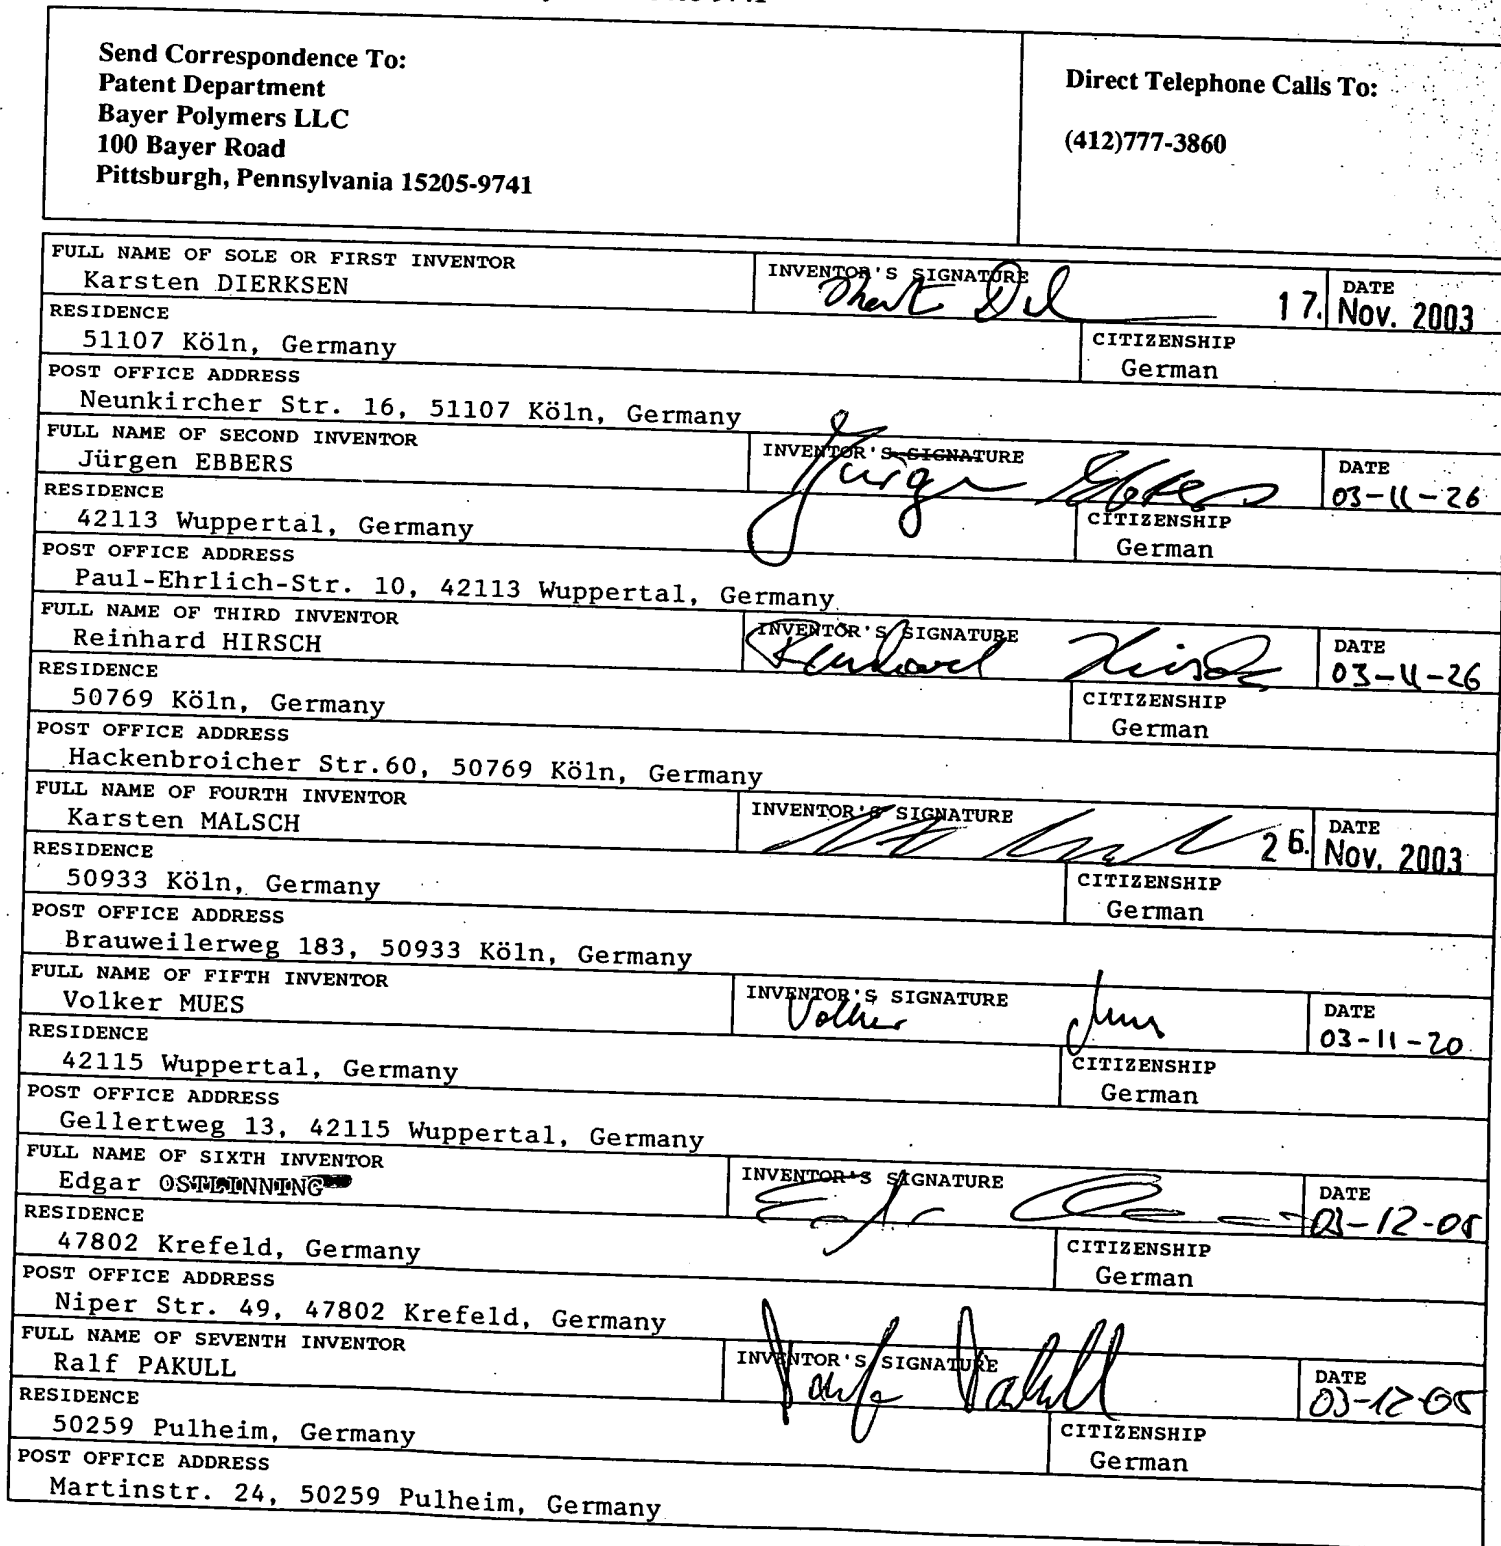 Send Correspondence To:
Patent Department
Bayer Polymers LLC
100 Bayer Road
Pittsburgh, Pennsylvania 15205-9741
Direct Telephone Calls To:
(412)777-3860
FULL NAME OF SOLE OR FIRST INVENTOR
Karsten DIERKSEN
INVENTOR'S SIGNATURE
DATE
17. Nov. 2003
RESIDENCE
51107 Köln, Germany
CITIZENSHIP
German
POST OFFICE ADDRESS
Neunkircher Str. 16, 51107 Köln, Germany
FULL NAME OF SECOND INVENTOR
Jürgen EBBERS
INVENTOR'S SIGNATURE
Jürgen Ebbers
DATE
03-11-26
RESIDENCE
42113 Wuppertal, Germany
CITIZENSHIP
German
POST OFFICE ADDRESS
Paul-Ehrlich-Str. 10, 42113 Wuppertal, Germany
FULL NAME OF THIRD INVENTOR
Reinhard HIRSCH
INVENTOR'S SIGNATURE
Reinhard Hirsch
DATE
03-11-26
RESIDENCE
50769 Köln, Germany
CITIZENSHIP
German
POST OFFICE ADDRESS
Hackenbroicher Str.60, 50769 Köln, Germany
FULL NAME OF FOURTH INVENTOR
Karsten MALSCH
INVENTOR'S SIGNATURE
DATE
26. Nov. 2003
RESIDENCE
50933 Köln, Germany
CITIZENSHIP
German
POST OFFICE ADDRESS
Brauweilerweg 183, 50933 Köln, Germany
FULL NAME OF FIFTH INVENTOR
Volker MUES
INVENTOR'S SIGNATURE
Volker Mues
DATE
03-11-20
RESIDENCE
42115 Wuppertal, Germany
CITIZENSHIP
German
POST OFFICE ADDRESS
Gellertweg 13, 42115 Wuppertal, Germany
FULL NAME OF SIXTH INVENTOR
Edgar OSTLINNING
INVENTOR'S SIGNATURE
DATE
03-12-05
RESIDENCE
47802 Krefeld, Germany
CITIZENSHIP
German
POST OFFICE ADDRESS
Niper Str. 49, 47802 Krefeld, Germany
FULL NAME OF SEVENTH INVENTOR
Ralf PAKULL
INVENTOR'S SIGNATURE
Ralf Pakull
DATE
03-12-05
RESIDENCE
50259 Pulheim, Germany
CITIZENSHIP
German
POST OFFICE ADDRESS
Martinstr. 24, 50259 Pulheim, Germany